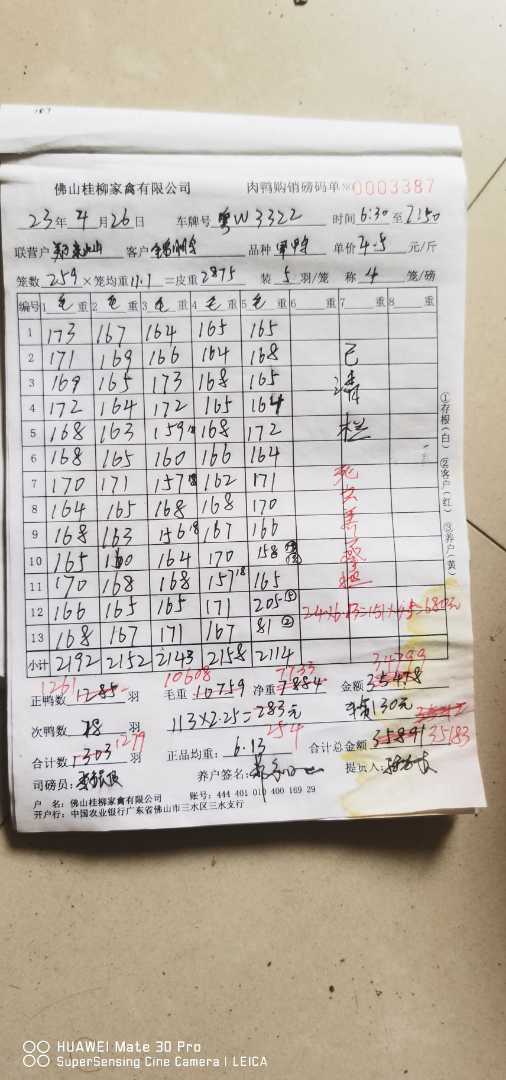 佛山桂柳家禽有限公司 肉鸭购销磅码单 NO 0003387
23年 4月 26日 车牌号 粤W3322 时间 6:30 至 7:50
联营户 客户 品种 单价 4.5 元/斤
笼数 259 ×笼均重 11.1 =皮重 2875 装 5 羽/笼 称 4 笼/磅
编号 1 毛 重 2 毛 重 3 毛 重 4 毛 重 5 毛 重 6 重 7 重 8 重
1 173 167 164 165 165
2 171 169 166 164 168 已
3 169 165 173 168 165 清
4 172 164 172 165 164
5 168 163 159 168 172 栏
6 168 165 160 166 164
7 170 171 157 162 171
8 164 165 168 168 170
9 168 163 156 167 166
10 165 160 164 170 158
11 170 168 168 157 165
12 166 165 165 171 205 ⑤
13 168 167 171 167 81 ②
小计 2192 2152 2143 2158 2114
①存根(白) ②客户(红) ③养户(黄)
1261 10608 7733 34799
正鸭数 1285 羽 毛重: 10759 净重: 7884 金额: 35478
次鸭数 18 羽 113×2.25=283元 130元
284
合计数: 1303 羽 1279 正品均重: 6.13 合计总金额: 35891 35183
司磅员: 养户签名: 提货人:
户 名: 佛山桂柳家禽有限公司 账号: 444 401 010 400 169 29
开户行: 中国农业银行广东省佛山市三水区三水支行
HUAWEI Mate 30 Pro
SuperSensing Cine Camera | LEICA